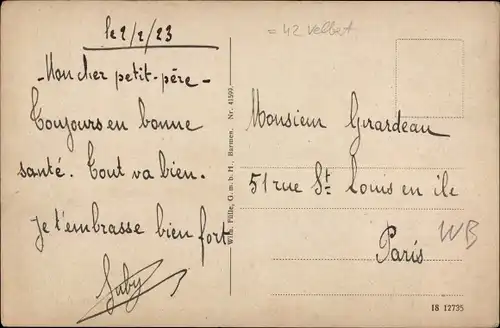 le 2/2/23
= 42 Velbert
Mon cher petit-père -
Toujours en bonne
santé. Tout va bien.
Je t'embrasse bien fort
Gaby
Wilh. Fülle, G. m. b. H. Barmen. Nr. 41599.
Monsieur Girardeau
51 rue St Louis en ile
Paris
WB
18 12735